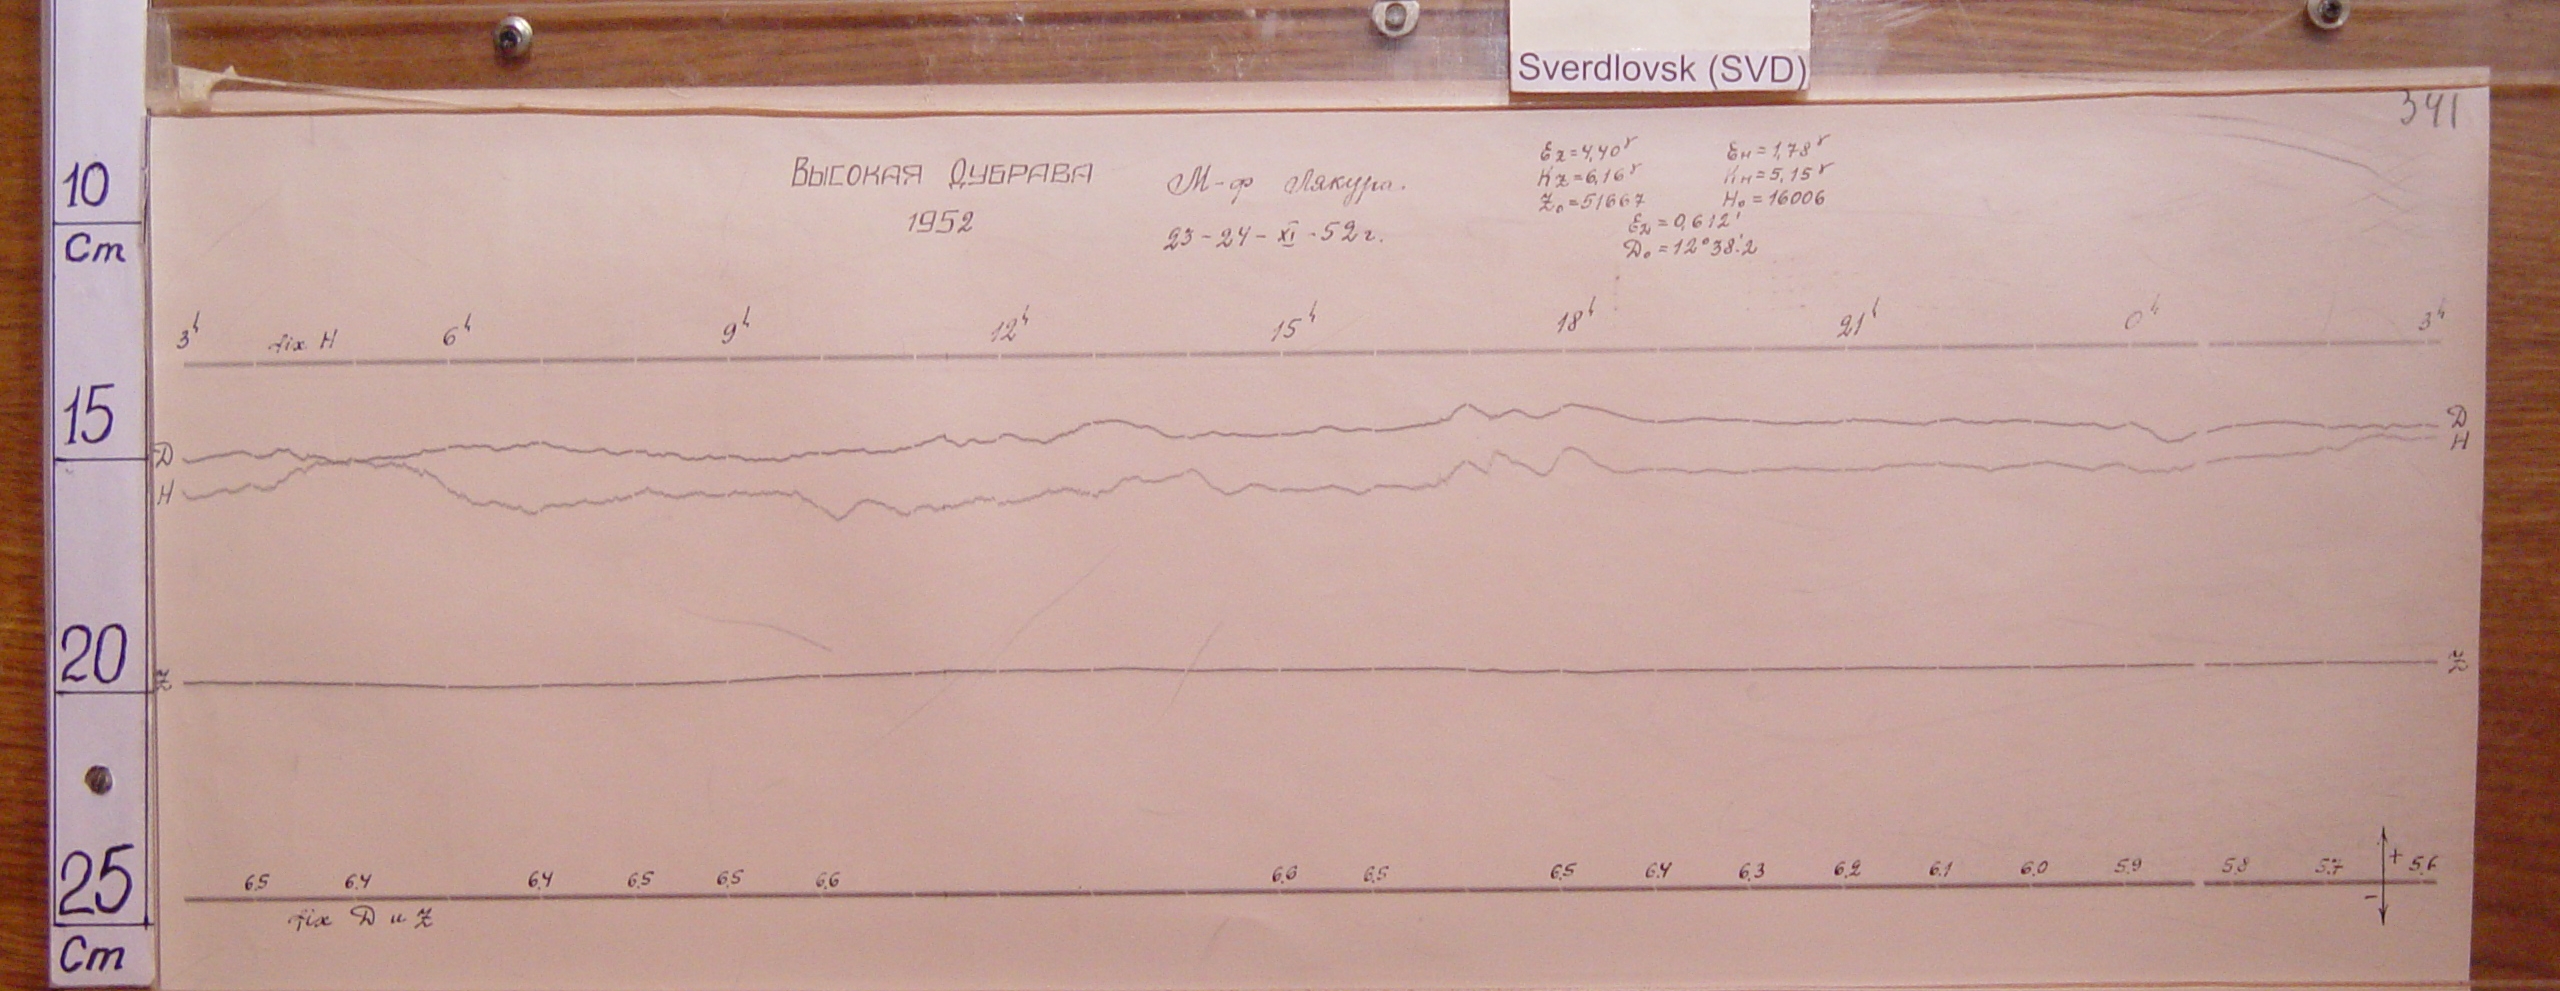 Sverdlovsk (SVD)
341
Высокая Дубрава
1952
М-ф Лякура.
23-24-XI-52г.
εz=4,40γ εн=1,78γ
Kz=6,16γ Kн=5,15γ
Z₀=51667 H₀=16006
=0,612'
D₀=12°38'.2
10
Cm
15
20
25
Cm
3h fix H 6h 9h 12h 15h 18h 21h 0h 3h
D D
H H
Z Z
6,5 6,4 6,4 6,5 6,5 6,6 6,6 6,5 6,5 6,4 6,3 6,2 6,1 6,0 5,9 5,8 5,7 + 5,6
-
fix D и Z